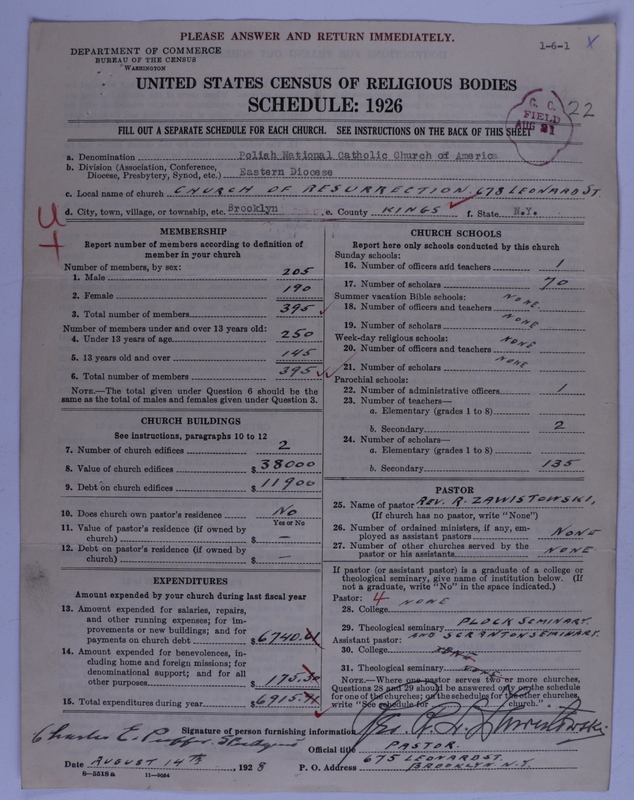 PLEASE ANSWER AND RETURN IMMEDIATELY.
1-6-1 X
DEPARTMENT OF COMMERCE
BUREAU OF THE CENSUS
WASHINGTON
UNITED STATES CENSUS OF RELIGIOUS BODIES
SCHEDULE: 1926
FIELD
AUG 21
22
FILL OUT A SEPARATE SCHEDULE FOR EACH CHURCH. SEE INSTRUCTIONS ON THE BACK OF THIS SHEET
a. Denomination Polish National Catholic Church of America
b. Division (Association, Conference, Diocese, Presbytery, Synod, etc.) Eastern Diocese
c. Local name of church CHURCH OF RESURRECTION. 678 LEONARD ST
d. City, town, village, or township, etc. Brooklyn e. County KINGS f. State N.Y.
MEMBERSHIP
Report number of members according to definition of
member in your church
Number of members, by sex:
1. Male 205
2. Female 190
3. Total number of members 395
Number of members under and over 13 years old:
4. Under 13 years of age 250
5. 13 years old and over 145
6. Total number of members 395
NOTE.—The total given under Question 6 should be
same as the total of males and females given under Question 3.
CHURCH BUILDINGS
See instructions, paragraphs 10 to 12
7. Number of church edifices 2
8. Value of church edifices $ 38000
9. Debt on church edifices $ 11900
10. Does church own pastor's residence No
Yes or No
11. Value of pastor's residence (if owned by
church) $ —
12. Debt on pastor's residence (if owned by
church) $ —
EXPENDITURES
Amount expended by your church during last fiscal year
13. Amount expended for salaries, repairs,
and other running expenses; for im-
provements or new buildings; and for
payments on church debt $ 6740.
14. Amount expended for benevolences, in-
cluding home and foreign missions; for
denominational support; and for all
other purposes $ 175.
15. Total expenditures during year $ 6915.
CHURCH SCHOOLS
Report here only schools conducted by this church
Sunday schools:
16. Number of officers and teachers 1
17. Number of scholars 70
Summer vacation Bible schools:
18. Number of officers and teachers NONE
19. Number of scholars NONE
Week-day religious schools:
20. Number of officers and teachers NONE
21. Number of scholars NONE
Parochial schools:
22. Number of administrative officers 1
23. Number of teachers—
a. Elementary (grades 1 to 8)
b. Secondary 2
24. Number of scholars—
a. Elementary (grades 1 to 8)
b. Secondary 135
PASTOR
25. Name of pastor REV. R. ZAWISTOWSKI,
(If church has no pastor, write "None")
26. Number of ordained ministers, if any, em-
ployed as assistant pastors NONE
27. Number of other churches served by the
pastor or his assistants NONE
If pastor (or assistant pastor) is a graduate of a college or
theological seminary, give name of institution below. (If
not a graduate, write "No" in the space indicated.)
Pastor: 4
28. College NONE
29. Theological seminary PLOCK SEMINARY.
Assistant pastor: AND SCRANTON SEMINARY.
30. College NONE
31. Theological seminary NONE
NOTE.—Where one pastor serves two or more churches,
Questions 28 and 29 should be answered only on the schedule
for one of the churches; on the schedules for the other churches,
write "See schedule for church."
Signature of person furnishing information Rev. R. Zawistowski
Charles E.
Official title PASTOR.
Date AUGUST 14TH, 1928 P. O. Address 675 LEONARD ST.
BROOKLYN N.Y.
6—5518 a 11—9054